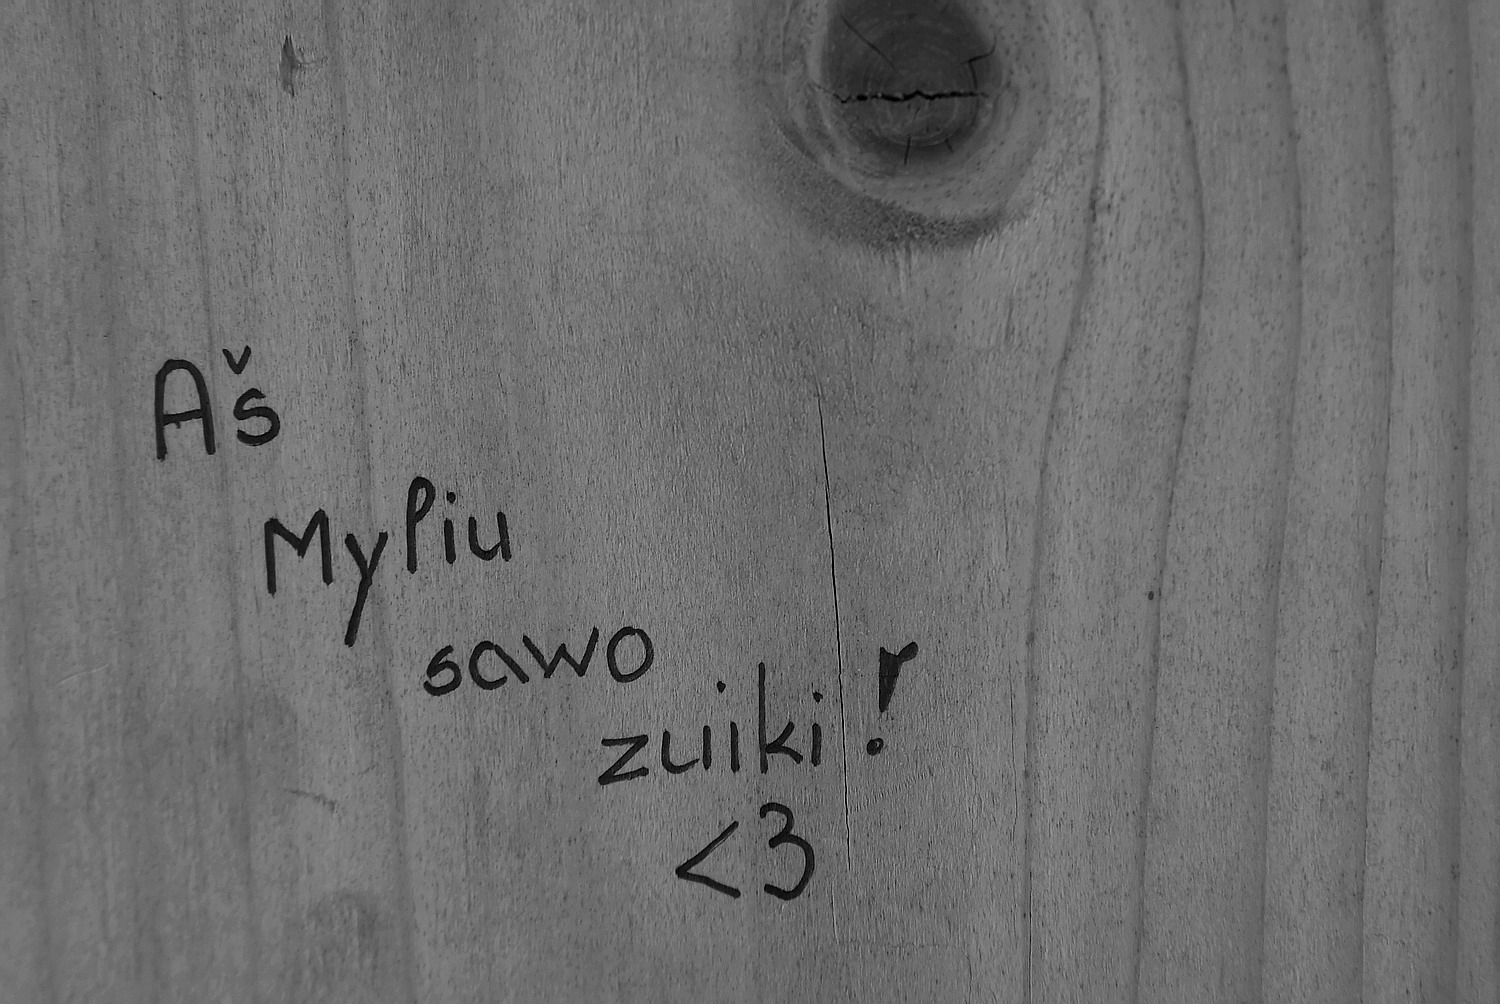 Aš
Myliu
sawo
zuiki!
<3